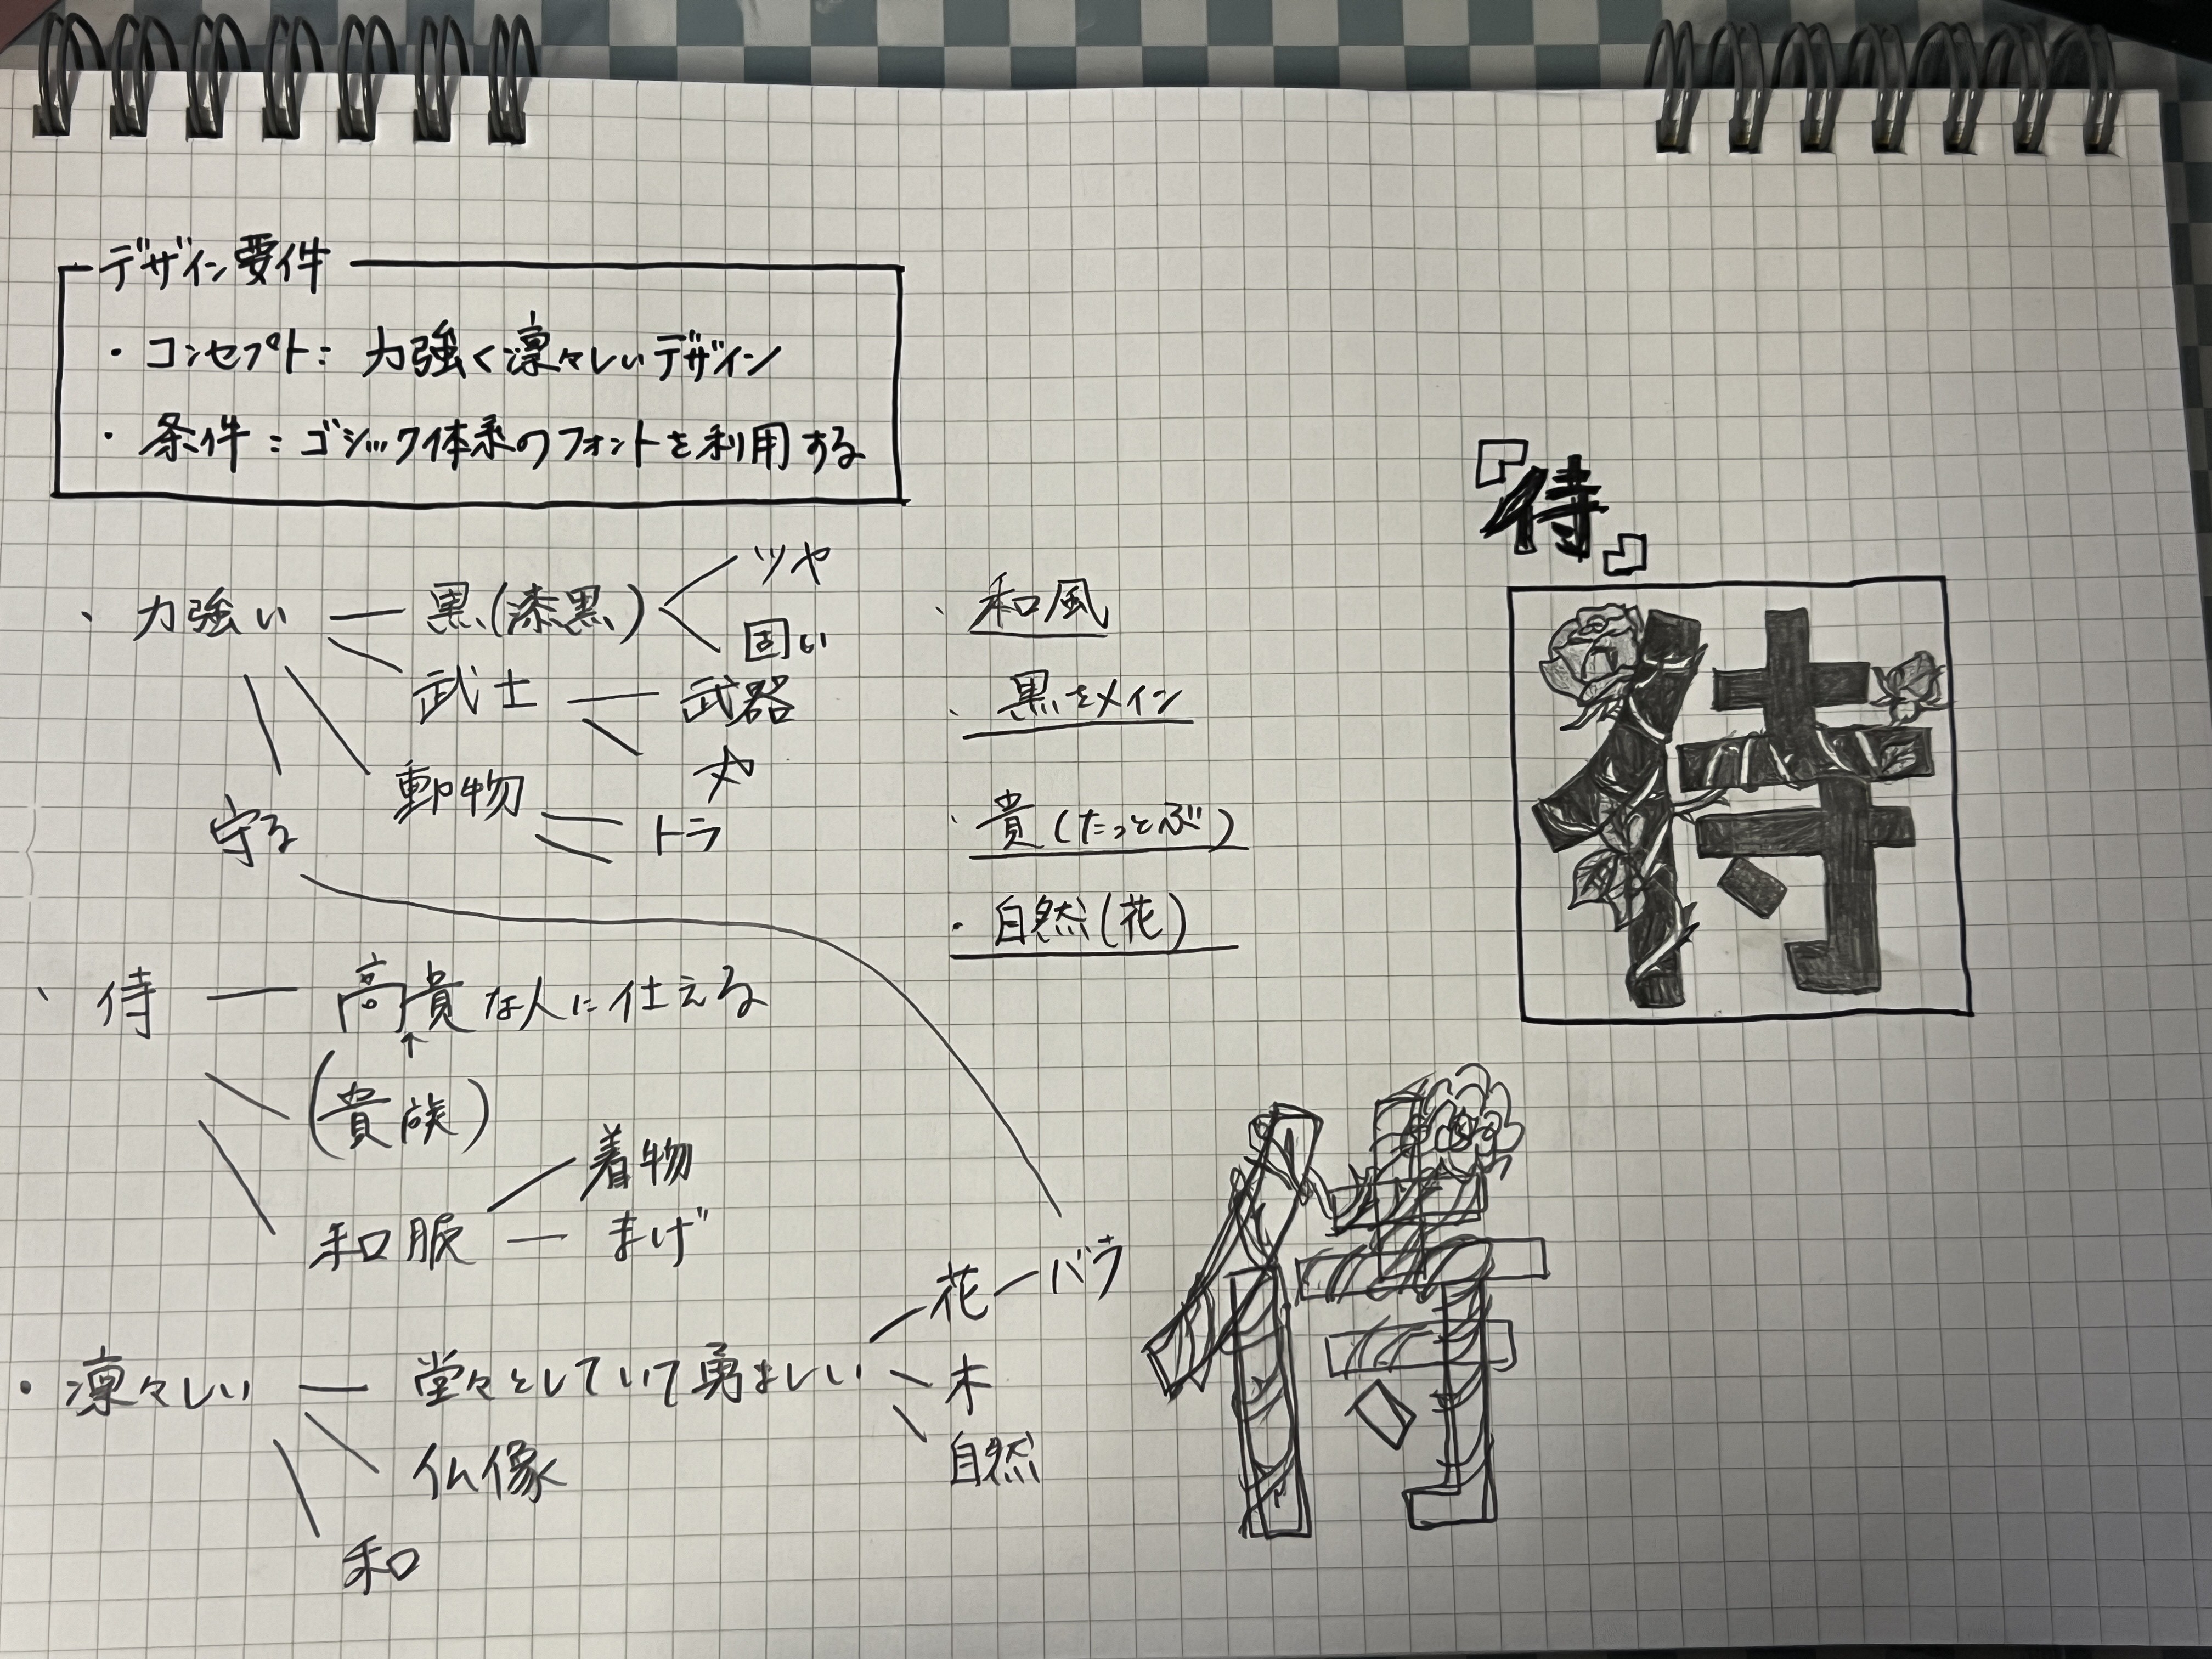 デザイン要件
・コンセプト: 力強く凛々しいデザイン
・条件: ゴシック体系のフォントを利用する
・力強い
黒(漆黒)
ツヤ
固い
武士
武器
動物
トラ
守る
・侍
高貴な人に仕える
↑
(貴族)
和服
着物
まげ
・凛々しい
堂々としていて勇ましい
花
バラ
木
自然
仏像
和
・和風
・黒をメイン
・貴(たっとぶ)
・自然(花)
『侍』
侍
侍